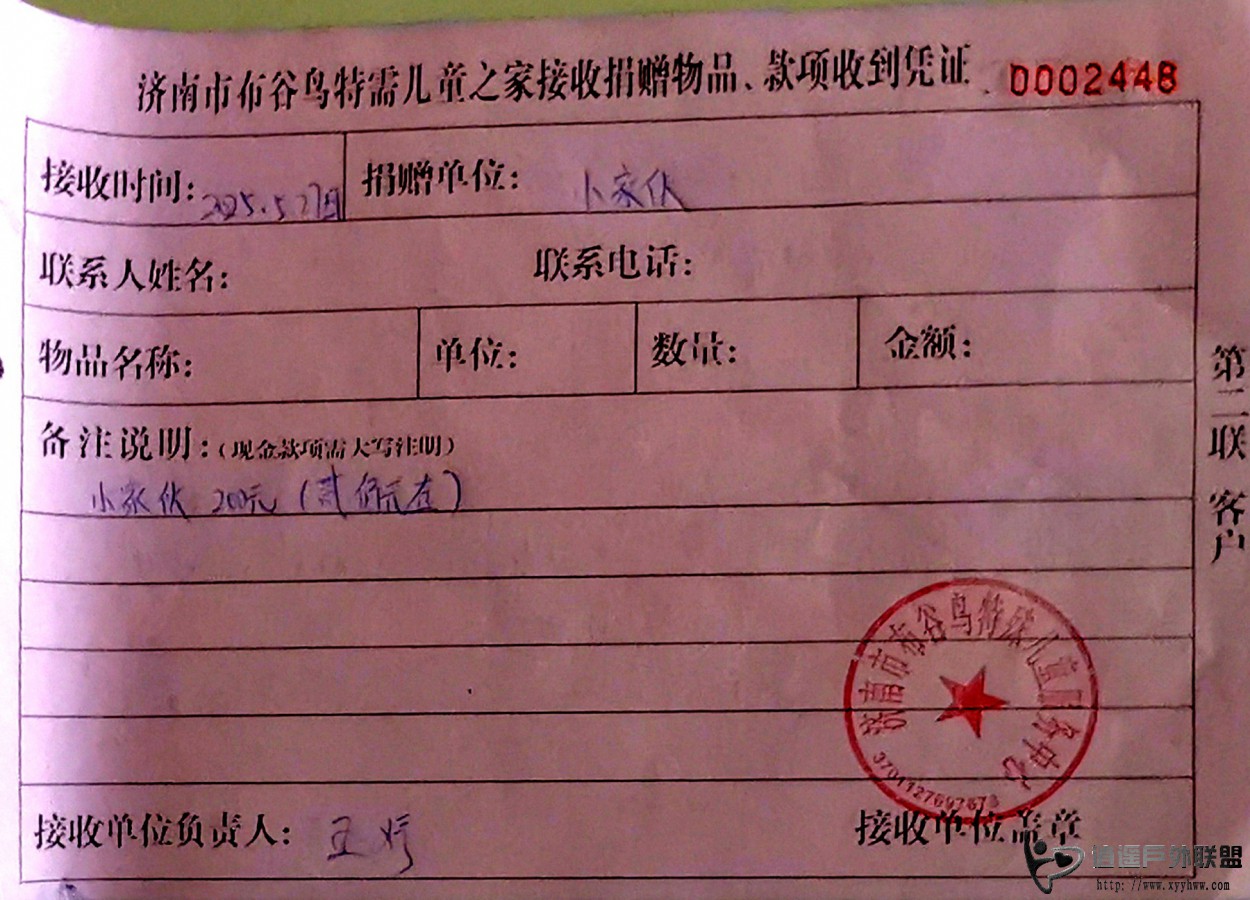 济南市布谷鸟特需儿童之家接收捐赠物品、款项收到凭证 0002448
接收时间: 2025.5 27日 捐赠单位: 小家伙
联系人姓名: 联系电话:
物品名称: 单位: 数量: 金额:
备注说明:(现金款项需大写注明)
小家伙 200元 (贰佰元整)
第二联 客户
济南市布谷鸟特殊儿童服务中心
接收单位负责人: 王
接收单位盖章
逍遥户外联盟
http://www.xyyhww.com